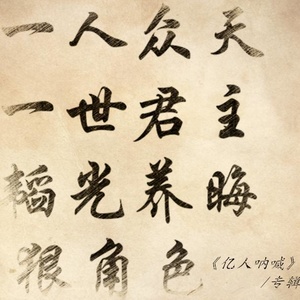 一人众天
一世君主
韬光养晦
狠角色
《亿人呐喊》
/专辑